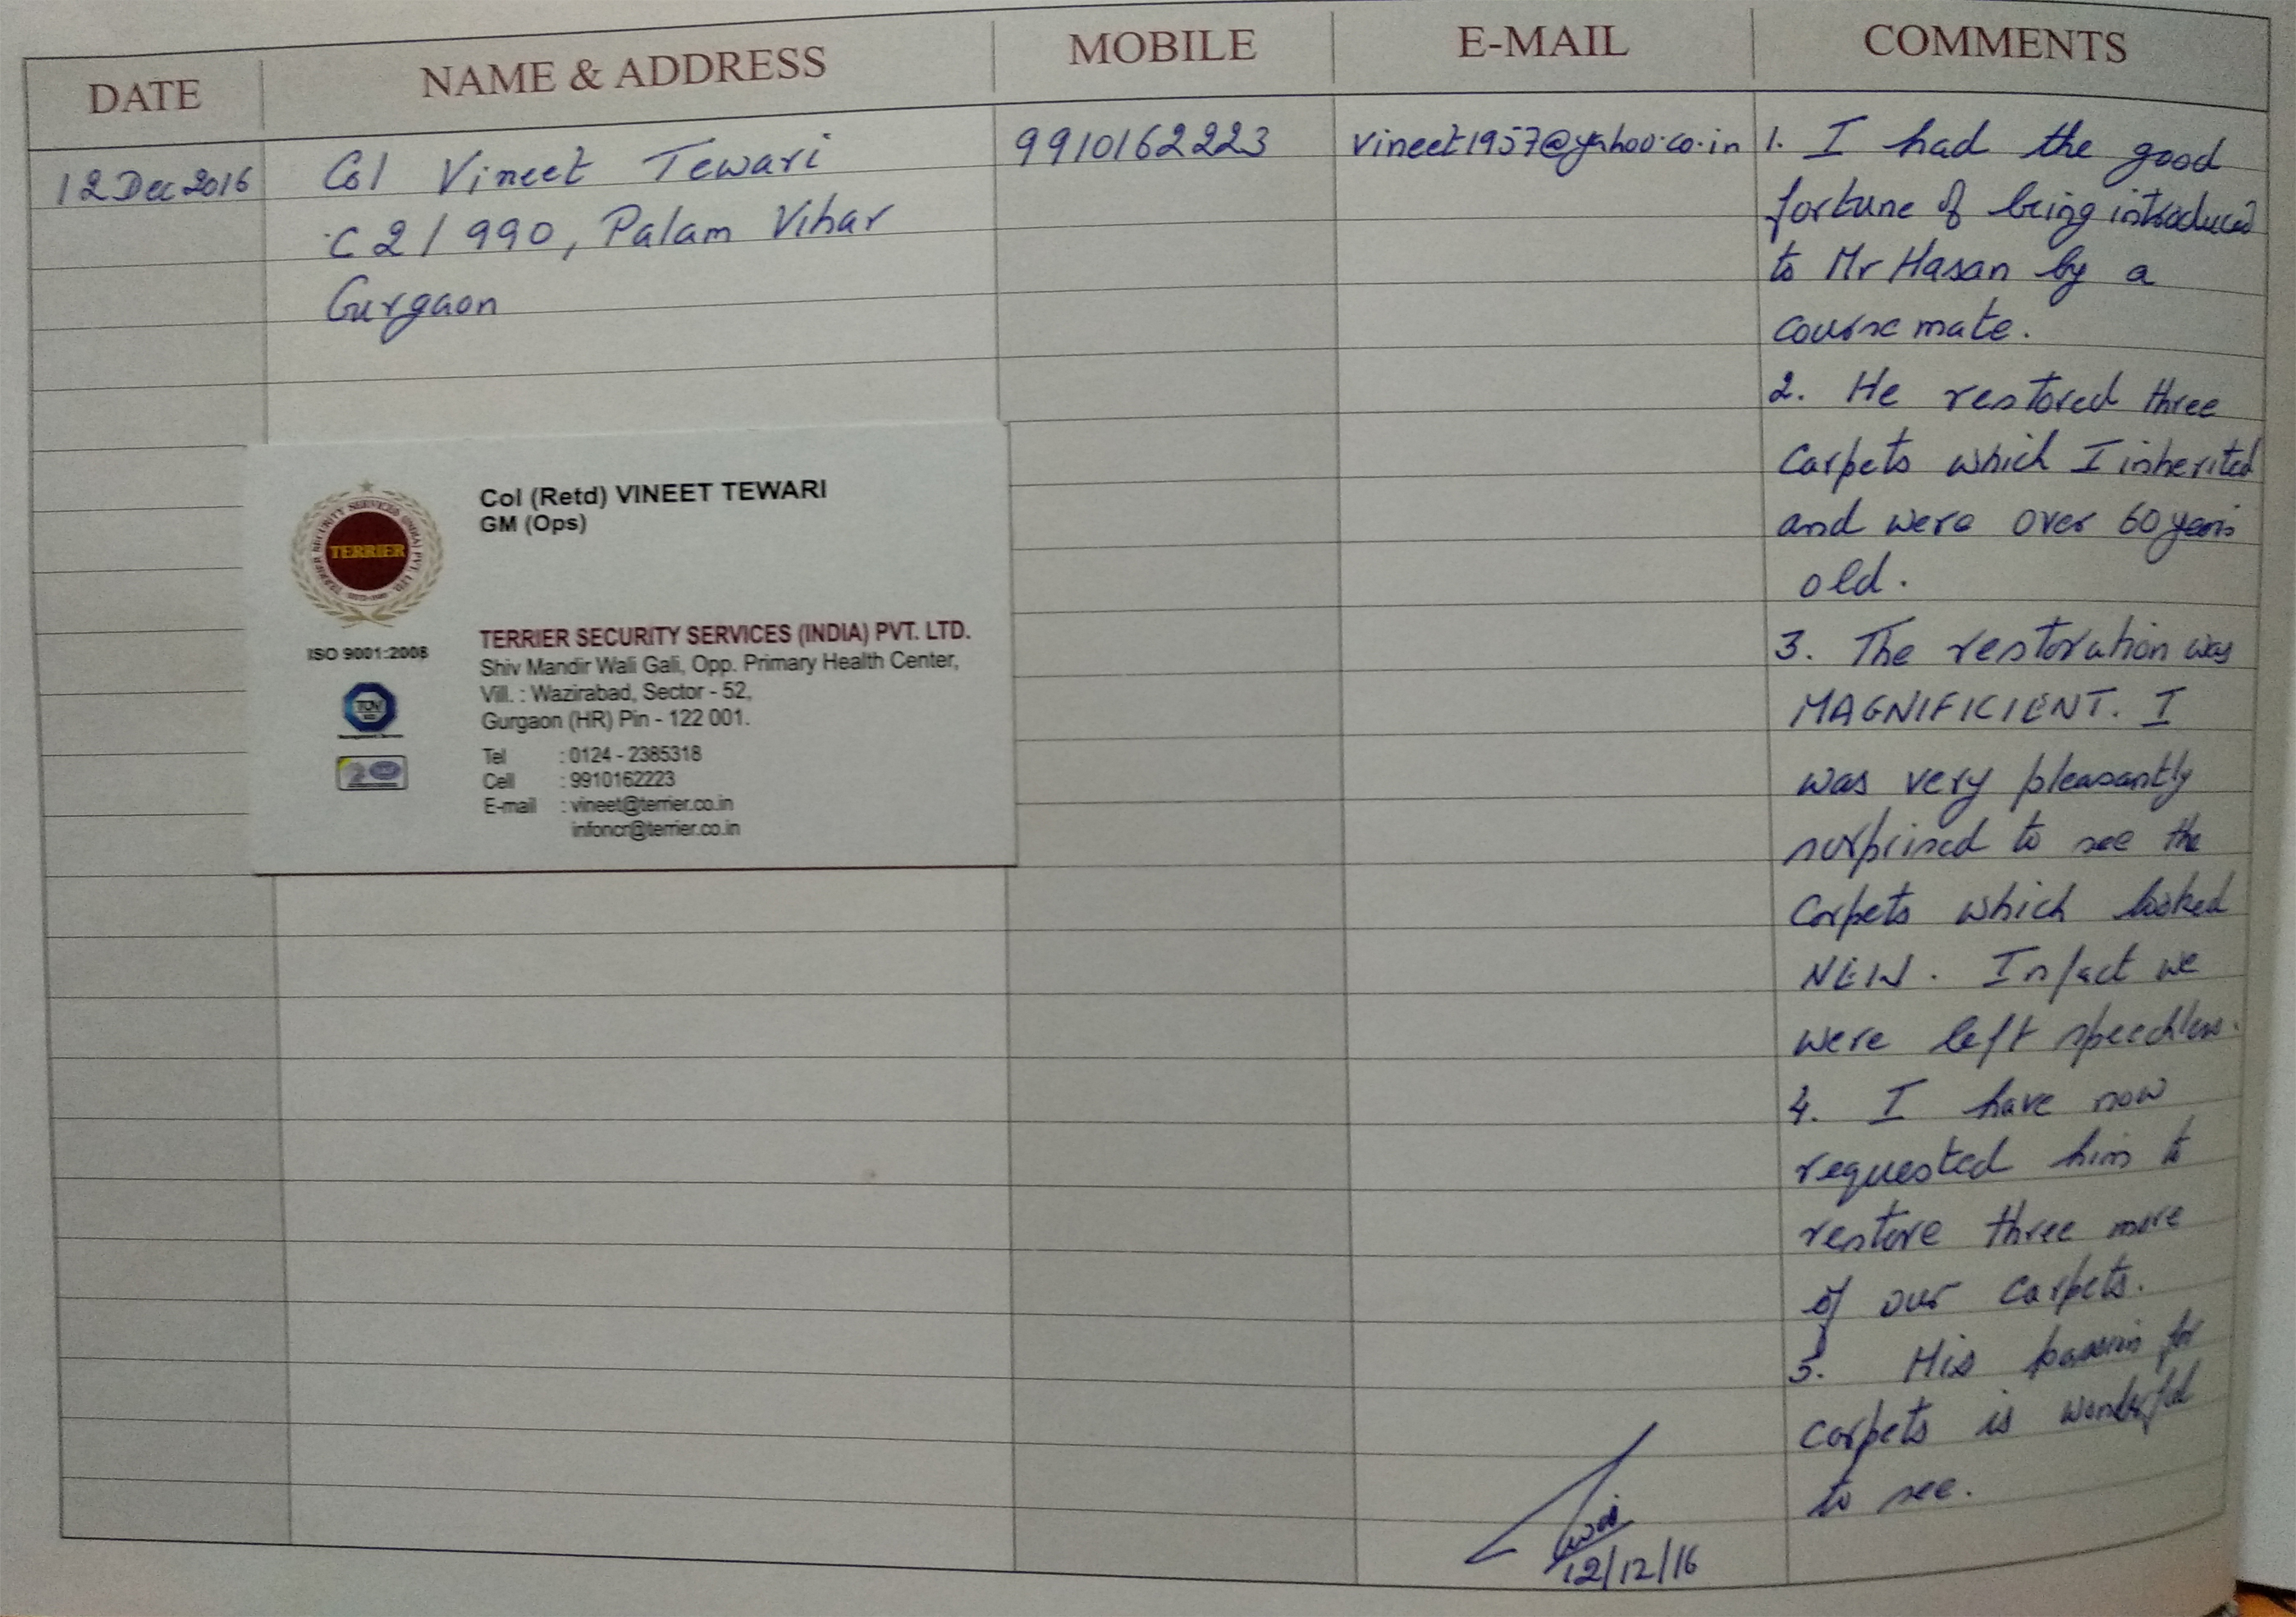 DATE NAME & ADDRESS MOBILE E-MAIL COMMENTS
12 Dec 2016
Col Vineet Tewari
C2/990, Palam Vihar
Gurgaon
9910162223
vineet1957@yahoo.co.in
1. I had the good
fortune of being introduced
to Mr Hasan by a
course mate.
2. He restored three
carpets which I inherited
and were over 60 years
old.
3. The restoration was
MAGNIFICIENT. I
was very pleasantly
surprised to see the
carpets which looked
NEW. Infact we
were left speechless.
4. I have now
requested him to
restore three more
of our carpets.
5. His passion for
carpets is wonderful
to see.
12/12/16
TERRIER SECURITY SERVICES (INDIA) PVT. LTD.
TERRIER
ISO 9001:2008
TUV
Col (Retd) VINEET TEWARI
GM (Ops)
TERRIER SECURITY SERVICES (INDIA) PVT. LTD.
Shiv Mandir Wali Gali, Opp. Primary Health Center,
Vill. : Wazirabad, Sector - 52,
Gurgaon (HR) Pin - 122 001.
Tel : 0124 - 2385318
Cell : 9910162223
E-mail : vineet@terrier.co.in
infoncr@terrier.co.in